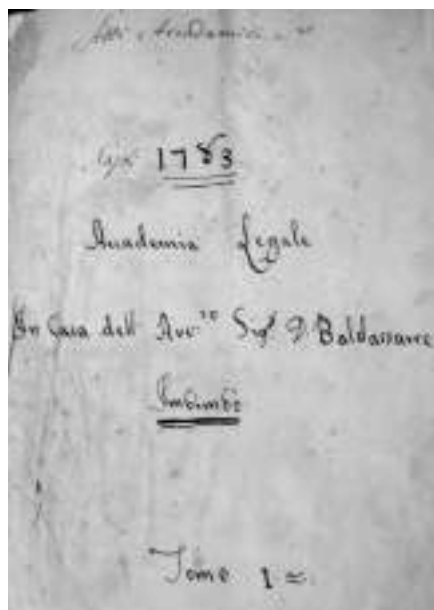 Atti Accademici
1783
Academia Legale
In Casa dell' Avv.to Sig.r D. Baldassarre
Imbimbo
Tomo 1